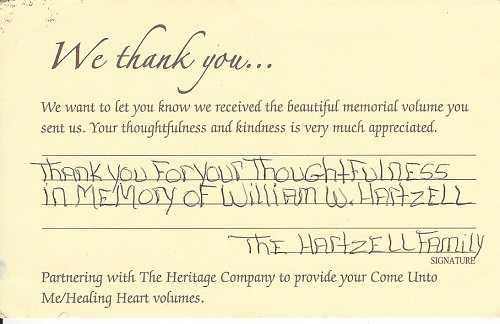 We thank you...
We want to let you know we received the beautiful memorial volume you
sent us. Your thoughtfulness and kindness is very much appreciated.
Thank you For your ThoughtFulness
in MeMory oF William W. Hartzell
The Hartzell Family
SIGNATURE
Partnering with The Heritage Company to provide your Come Unto
Me/Healing Heart volumes.